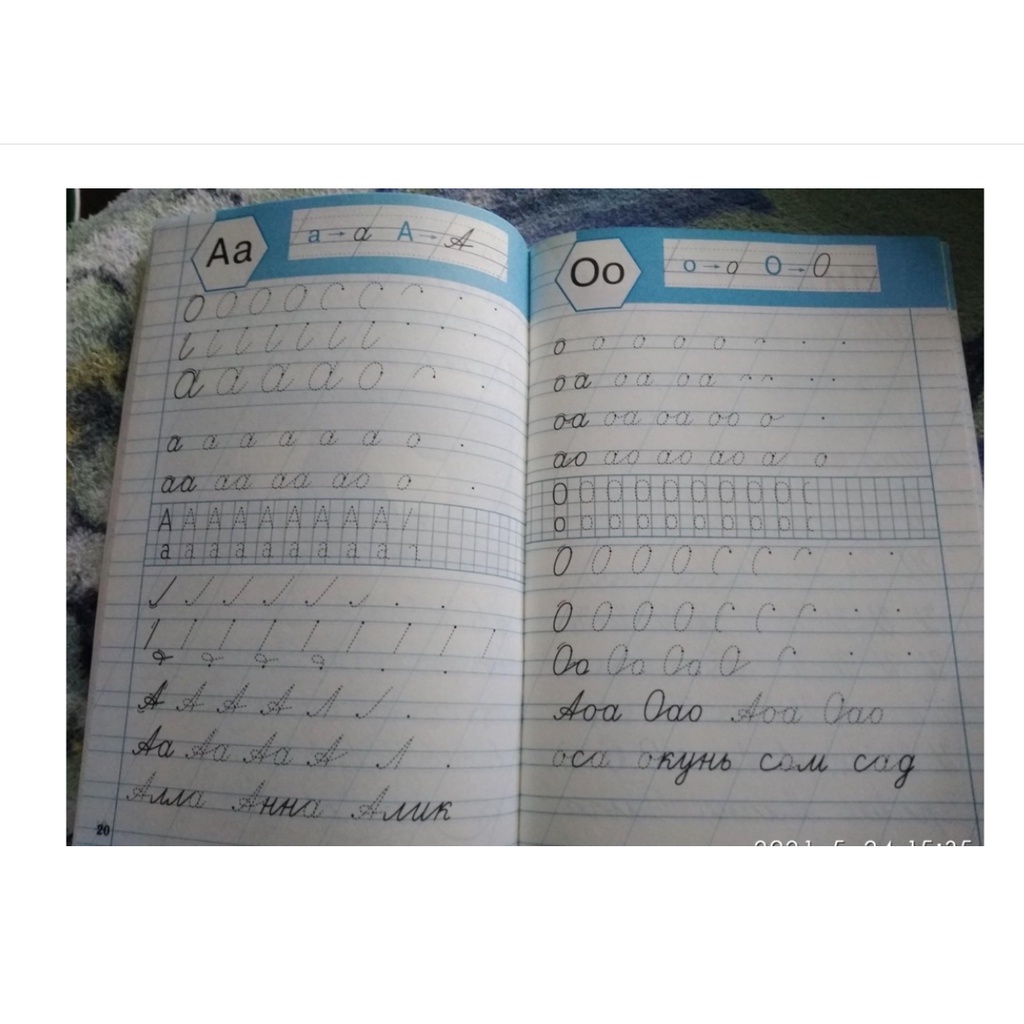 Аа а→а А→А
О О О О С С
а а а а о
а а а а а а о
аа аа аа ао о
А А А А А А А А
а а а а а а а а а
А А А А
Аа Аа Аа А
Алла Анна Алик
20
Оо о→о О→О
о о о о о
оа оа оа
оа оа оа оо о
ао ао ао ао а о
О О О О О О О О О С
о о о о о о о о о с
О О О О С С
О О О О С С
Оо Оо Оо О
Аоа Оао Аоа Оао
оса окунь сом сад